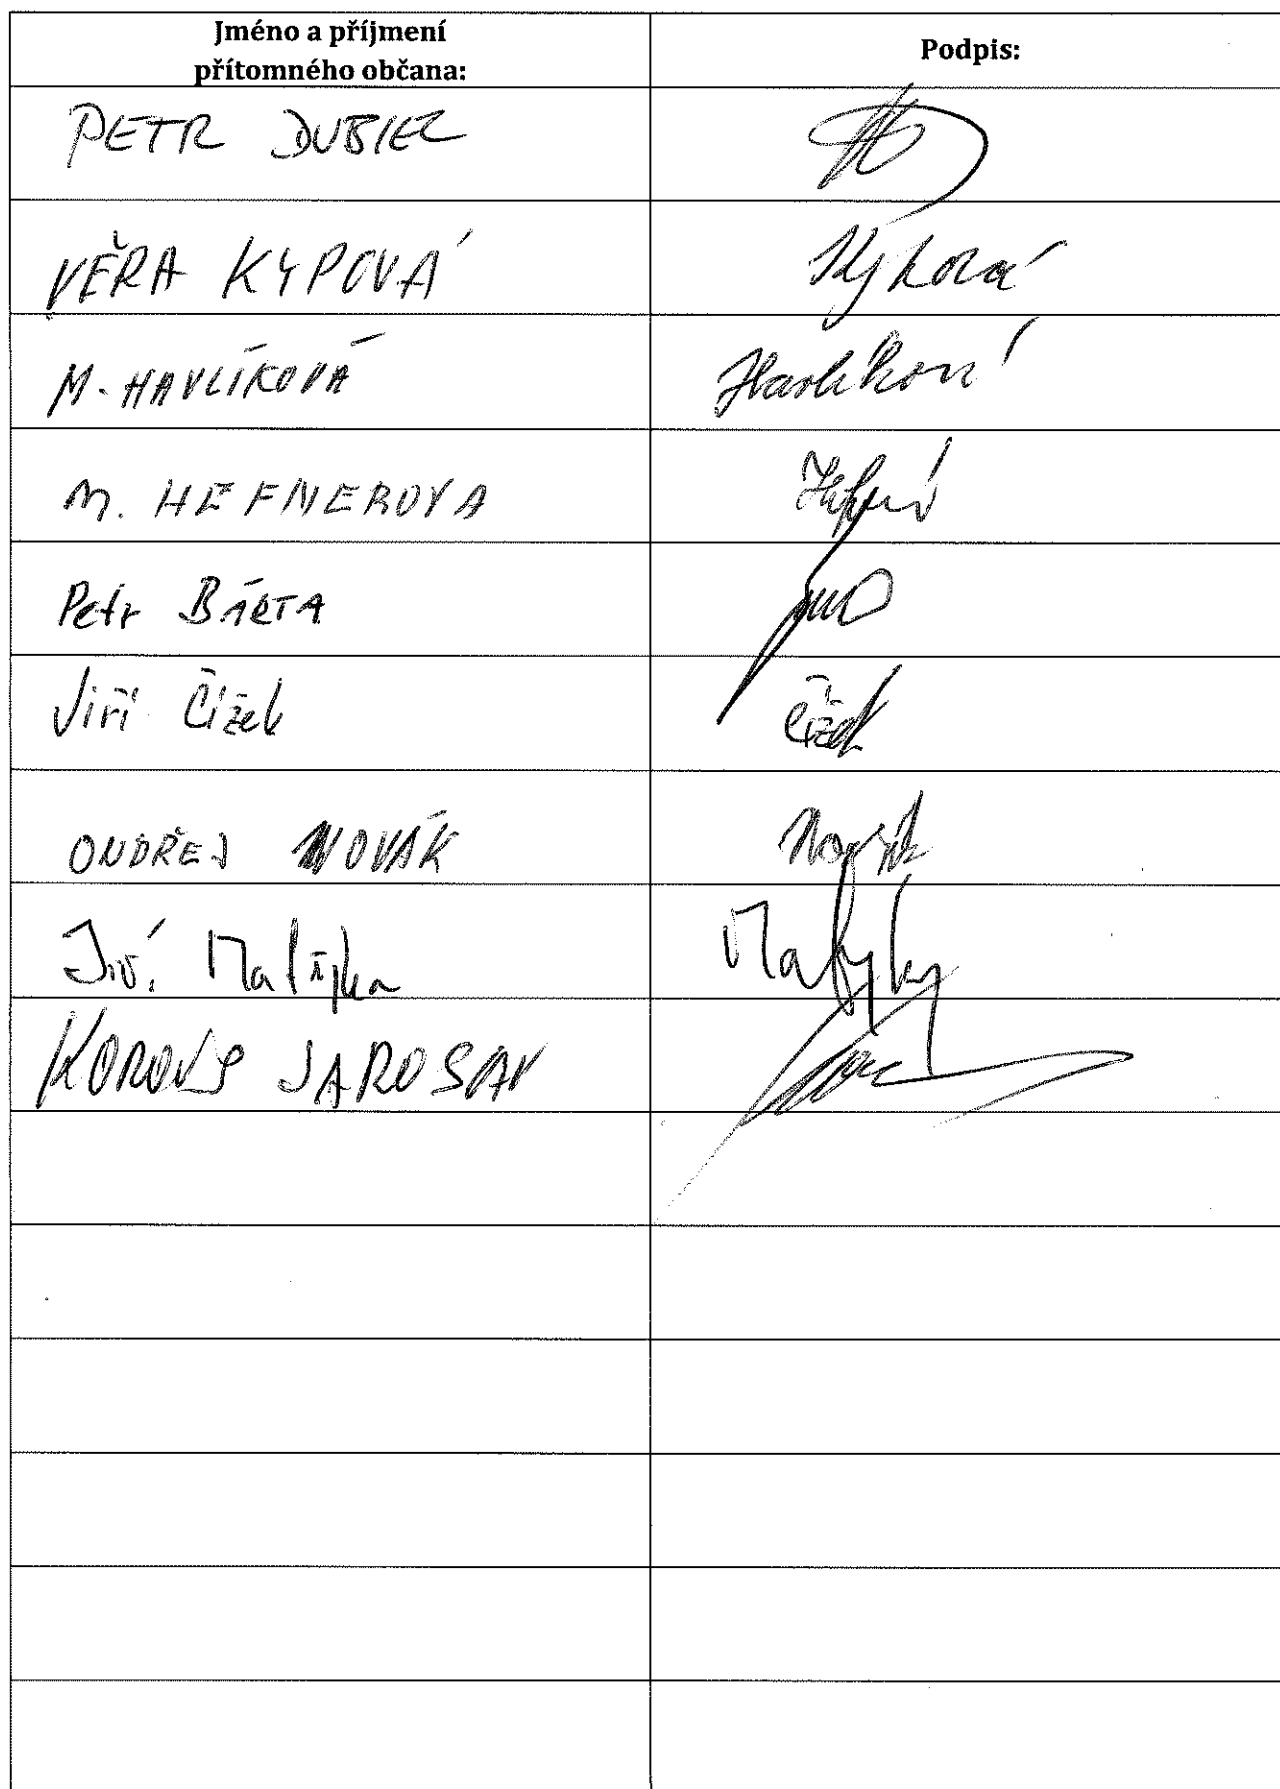 Jméno a příjmení
přítomného občana:
Podpis:
PETR DUBIEL
VĚRA KYPOVÁ
Kypová
M. HAVLÍKOVÁ
Havlíková
M. HEFNEROVA
Petr BÁRTA
Jiří Čížek
Čížek
ONDŘEJ NOVÁK
Novák
Jiří Matějka
Matějka
JAROSAV